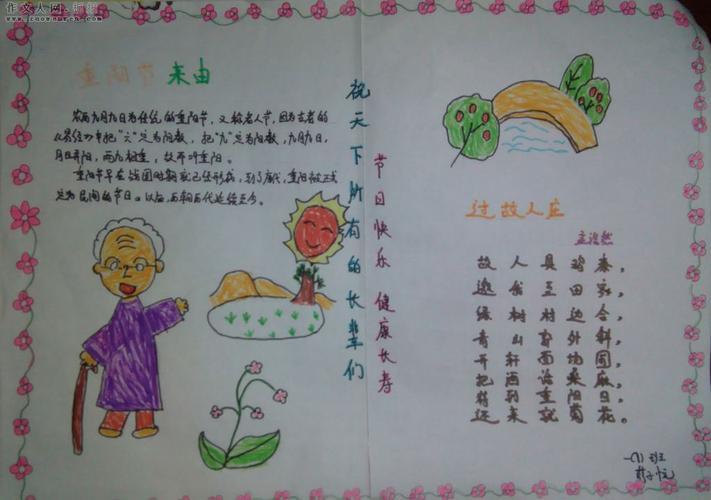 作文人网
重阳节 来由
农历九月九日为传统的重阳节，又称老人节，因为古老的
《易经》中把"六"定为阴数，把"九"定为阳数，九月九日，
月日并阳，两九相重，故而叫重阳。
重阳节早在战国时期就已经形成，到了唐代，重阳被正式
定为民间的节日。以后历朝历代延续至今。
祝天下所有的长辈们
节日快乐 健康长寿
过故人庄
孟浩然
故人具鸡黍，
邀我至田家，
绿树村边合
青山郭外斜
开轩面场圃，
把酒话桑麻，
待到重阳日，
还来就菊花。
一(1)班